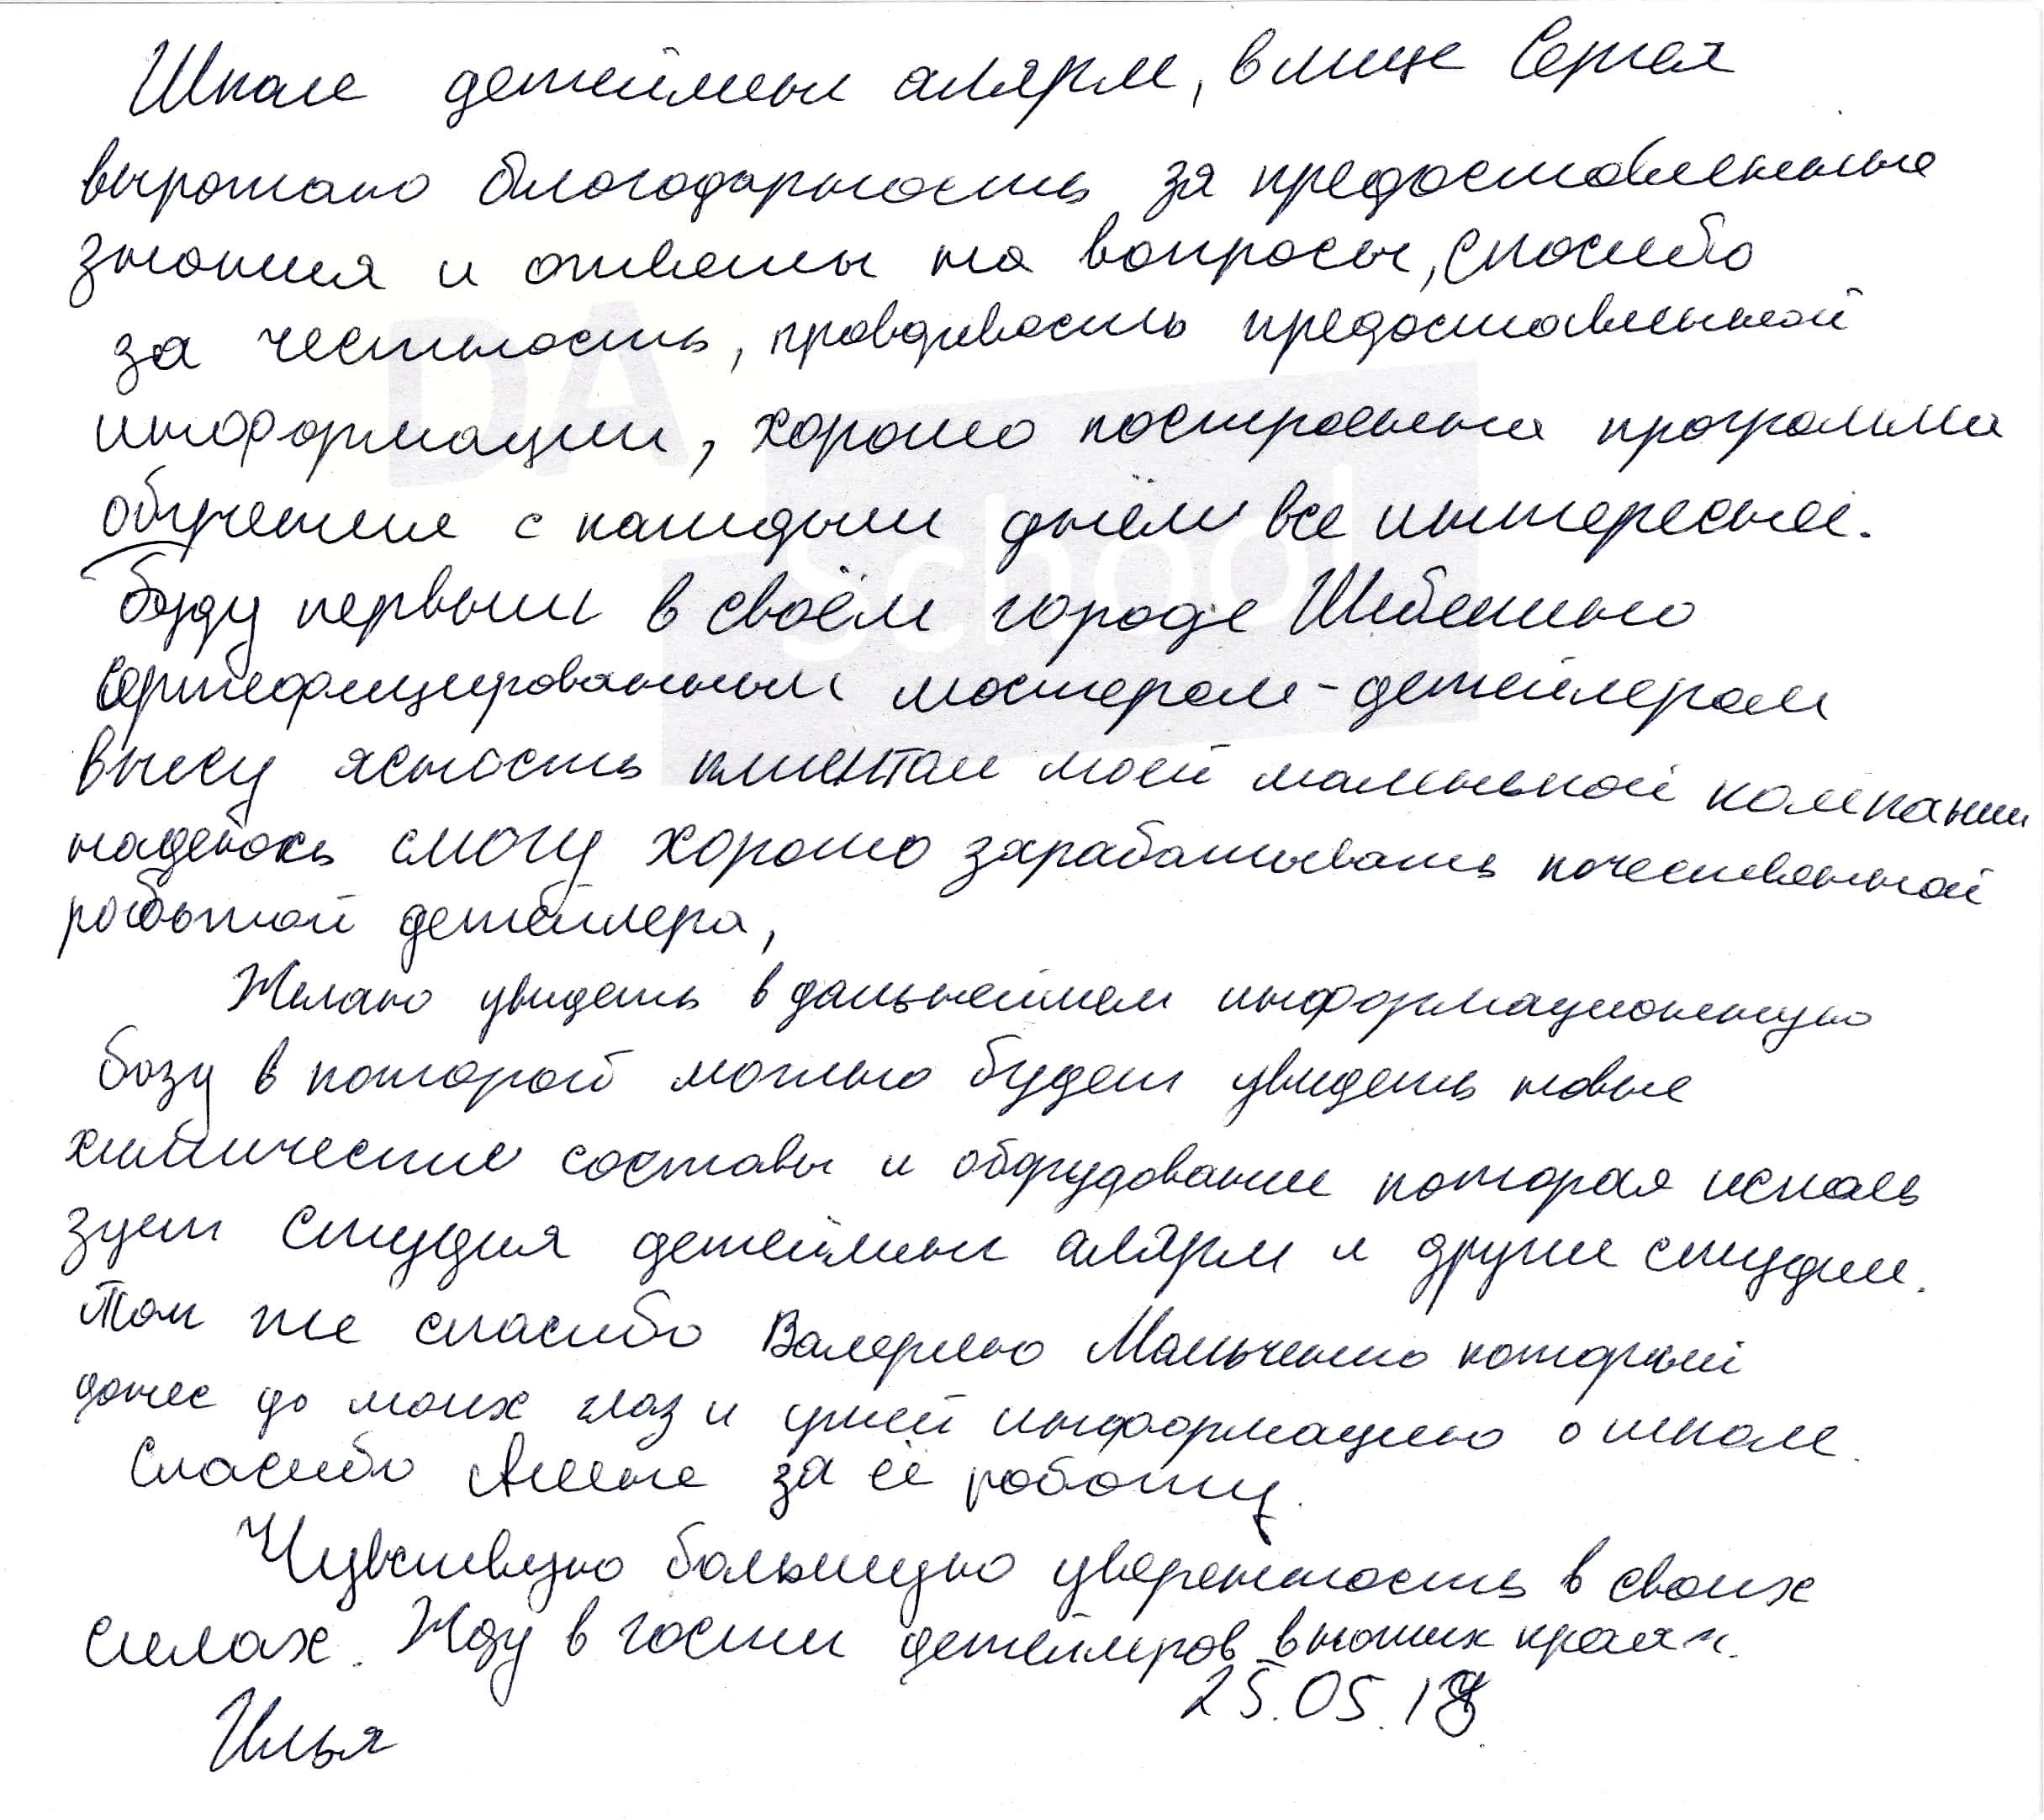 Школе детейлинг алярм, в лице Сергея
выражаю благодарность за предоставленные
знания и ответы на вопросы, спасибо
за честность, правдивость предоставленной
информации, хорошо построенная программа
обучения с каждым днём все интересней.
Буду первым в своём городе Шебекино
сертефицированным мастером-детейлером
внесу ясность клиентам моей маленькой компании
надеюсь смогу хорошо зарабатывать качественной
работой детейлера,
Желаю увидеть в дальнейшем информационную
базу в которой можно будет увидеть новые
химические составы и оборудование которая исполь
зует студия детейлинг алярм и другие студии.
Так же спасибо Валерию Мальченко который
донес до моих глаз и ушей информацию о школе.
Спасибо Алене за её работу.
Чувствую большую уверенность в своих
силах. Жду в гости детейлеров в наших краях.
25.05.18
Илья
DA
school